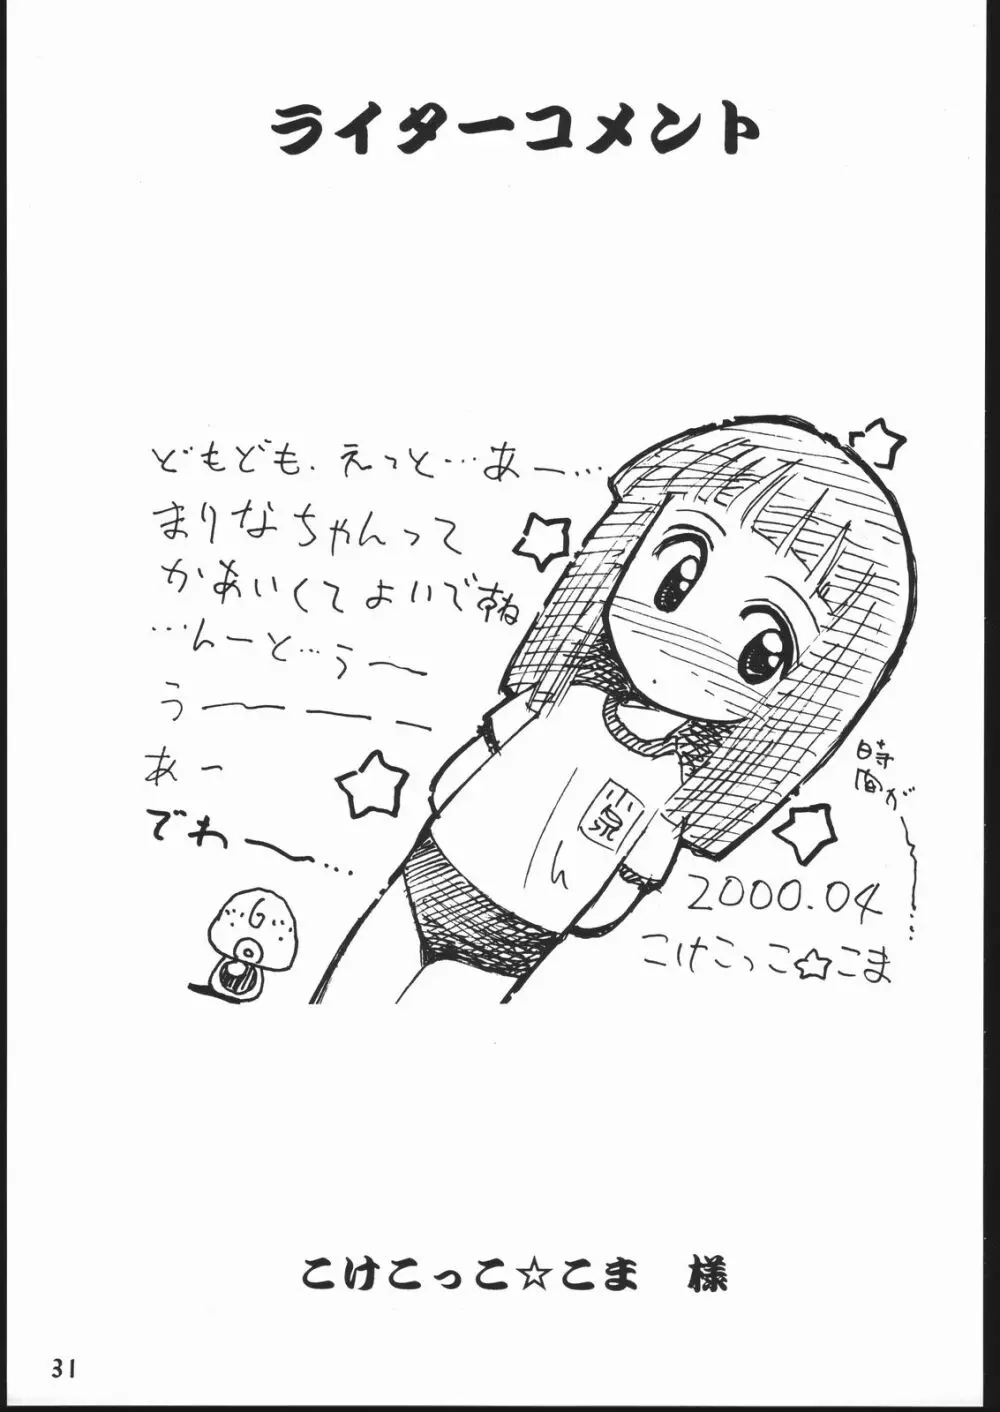 ライターコメント
どもども、えっと…あー…
まりなちゃんって
かあいくてよいですね
…んーと…うー〜
うー〜 ー ー
あー
でわー〜…
時間がー〜…
小泉
2000.04
こけこっこ☆こま
G
こけこっこ☆こま 様
31